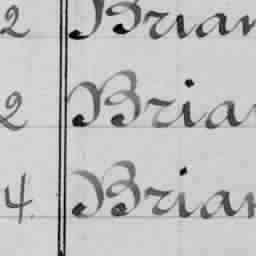 2 Brian
2 Brian
4. Brian